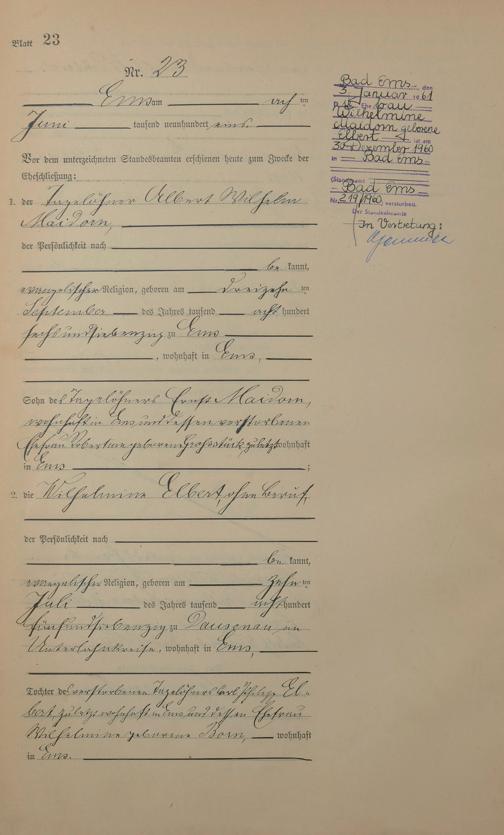 Blatt 23
Nr. 23
Ems am ach ten
Juni tausend neunhundert eins
Vor dem unterzeichneten Standesbeamten erschienen heute zum Zwecke der
Eheschließung:
1. der Tagelöhner Albert Wilhelm
Maidorn,
der Persönlichkeit nach
be kannt,
evangelischer Religion, geboren am dreizehn ten
September des Jahres tausend acht hundert
sechsundsiebenzig zu Ems
, wohnhaft in Ems,
Sohn des Tagelöhners Ernst Maidorn,
wohnhaft in Ems und dessen verstorbenen
Ehefrau geborene zuletzt wohnhaft
in Ems ;
2. die Wilhelmine Elbert, ohne Beruf,
der Persönlichkeit nach
be kannt,
evangelischer Religion, geboren am zehn ten
Juli des Jahres tausend acht hundert
fünfundsiebenzig zu Dausenau im
Unterlahnkreise, wohnhaft in Ems,
Tochter des verstorbenen Tagelöhners Carl Philipp El-
bert, zuletzt wohnhaft in Ems und dessen Ehefrau
Wilhelmine geborene Born, wohnhaft
in Ems.
Bad Ems, den
3. Januar 1961
Die Ehefrau
Wilhelmine
Maidorn geborene
Elbert ist am
30. Dezember 1960
in Bad Ems
(Standesamt
Bad Ems
Nr. 219/1960) verstorben.
Der Standesbeamte
In Vertretung: